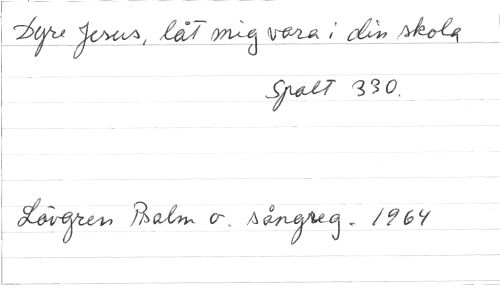 Dyre Jesus, låt mig vara i din skola
Spalt 330.
Lövgren Psalm o. sångreg. 1964